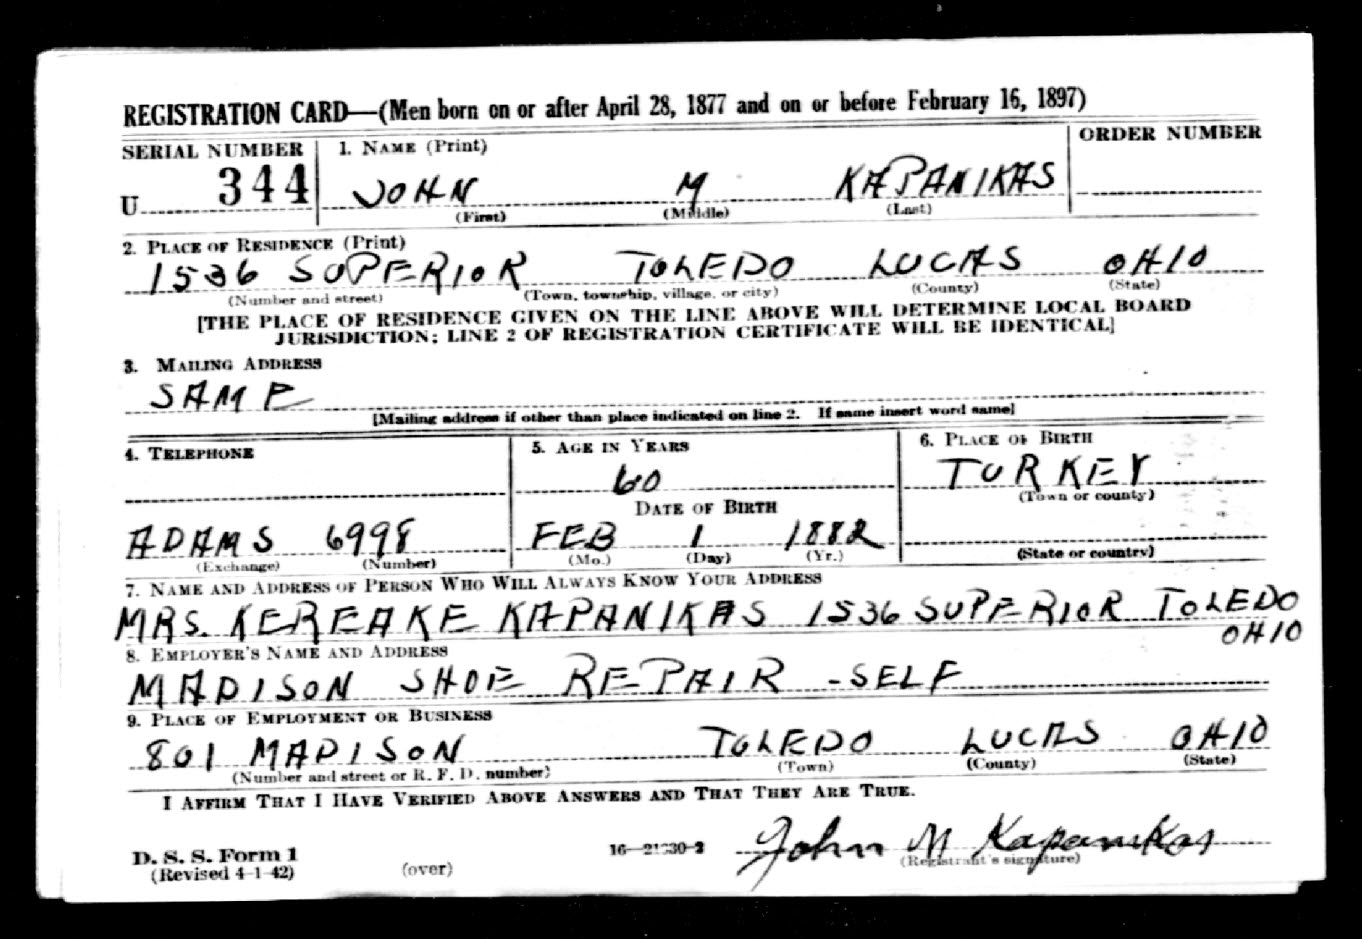 REGISTRATION CARD—(Men born on or after April 28, 1877 and on or before February 16, 1897)
SERIAL NUMBER 1. NAME (Print) ORDER NUMBER
U 344 JOHN M KAPANIKAS
(First) (Middle) (Last)
2. PLACE OF RESIDENCE (Print)
1536 SUPERIOR TOLEDO LUCAS OHIO
(Number and street) (Town, township, village, or city) (County) (State)
[THE PLACE OF RESIDENCE GIVEN ON THE LINE ABOVE WILL DETERMINE LOCAL BOARD
JURISDICTION; LINE 2 OF REGISTRATION CERTIFICATE WILL BE IDENTICAL]
3. MAILING ADDRESS
SAME
[Mailing address if other than place indicated on line 2. If same insert word same]
4. TELEPHONE 5. AGE IN YEARS 6. PLACE OF BIRTH
60 TURKEY
DATE OF BIRTH (Town or county)
ADAMS 6998 FEB 1 1882
(Exchange) (Number) (Mo.) (Day) (Yr.) (State or country)
7. NAME AND ADDRESS OF PERSON WHO WILL ALWAYS KNOW YOUR ADDRESS
MRS. KEREAKE KAPANIKAS 1536 SUPERIOR TOLEDO
OHIO
8. EMPLOYER'S NAME AND ADDRESS
MADISON SHOE REPAIR -SELF
9. PLACE OF EMPLOYMENT OR BUSINESS
801 MADISON TOLEDO LUCAS OHIO
(Number and street or R. F. D. number) (Town) (County) (State)
I AFFIRM THAT I HAVE VERIFIED ABOVE ANSWERS AND THAT THEY ARE TRUE.
John M Kapanikas
D. S. S. Form 1 16—21630-2 (Registrant's signature)
(Revised 4-1-42) (over)